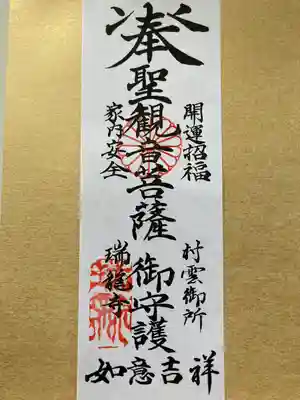 奉聖観音菩薩御守護
開運招福
家内安全
村雲御所
瑞龍寺
如意吉祥